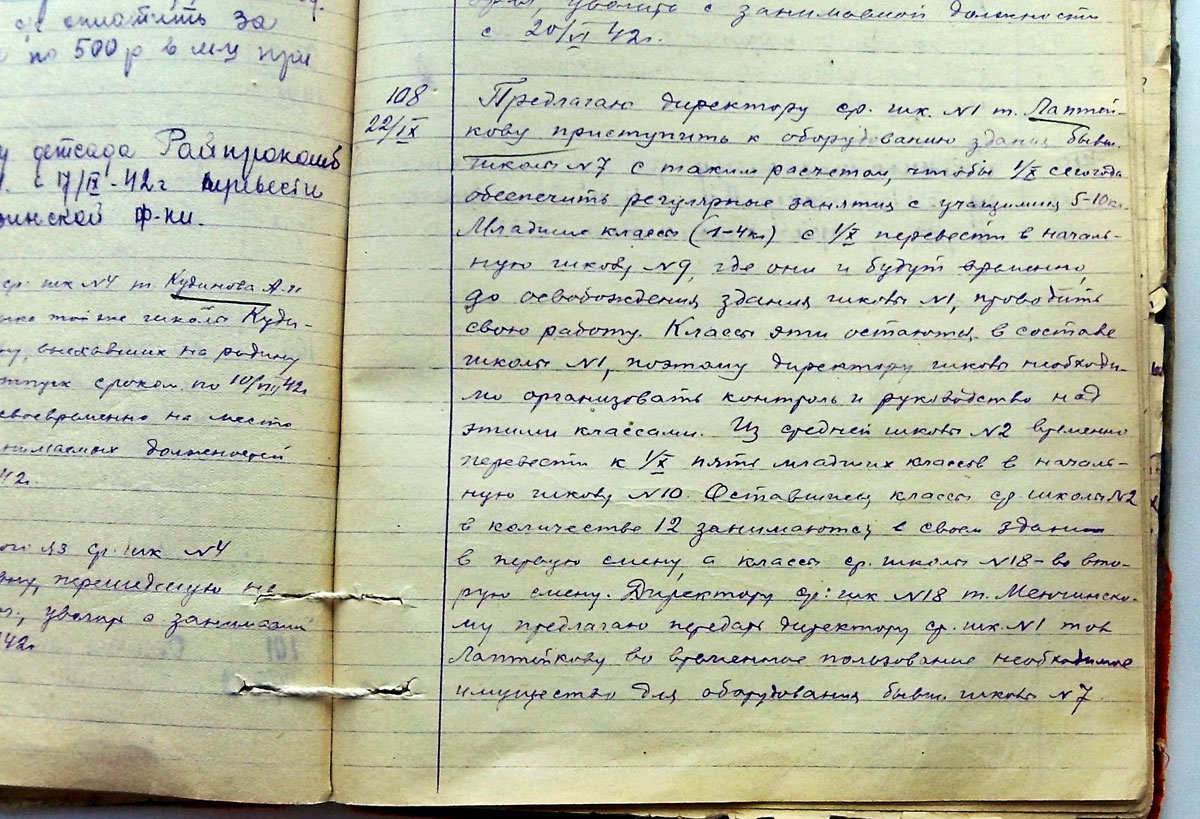 оплатить за
по 500 р в м-ц при
у детсада Райпрокомб
с 17/IX-42 г привести
ф-ки.
ср. шк №4 т. Кудинова А.
той же школы Куди-
ну, выехавших на родину
отпуск сроком по 10/VIII 42г
своевременно на место
занимаемых должностей
42г.
из ср. шк №4
перешедшую на
уволить с занимаемой
42г
уволить с занимаемой должности
с 20/VI 42г.
108
22/IX
Предлагаю директору ср. шк. №1 т. Лаптей-
кову приступить к оборудованию здания бывш.
школы №7 с таким расчетом, чтобы 1/X сего года
обеспечить регулярные занятия с учащимися 5-10кл.
Младшие классы (1-4кл) с 1/X перевести в началь-
ную школу №9, где они и будут временно,
до освобождения здания школы №1, проводить
свою работу. Классы эти остаются в составе
школы №1, поэтому директору школы необходи-
мо организовать контроль и руководство над
этими классами. Из средней школы №2 временно
перевести к 1/X пять младших классов в началь-
ную школу №10. Оставшиеся классы ср. школы №2
в количестве 12 занимаются в своем здании
в первую смену, а классы ср. школы №18 - во вто-
рую смену. Директору ср. шк №18 т. Менчинско-
му предлагаю передать директору ср. шк. №1 тов
Лаптейкову во временное пользование необходимое
имущество для оборудования бывш. школы №7